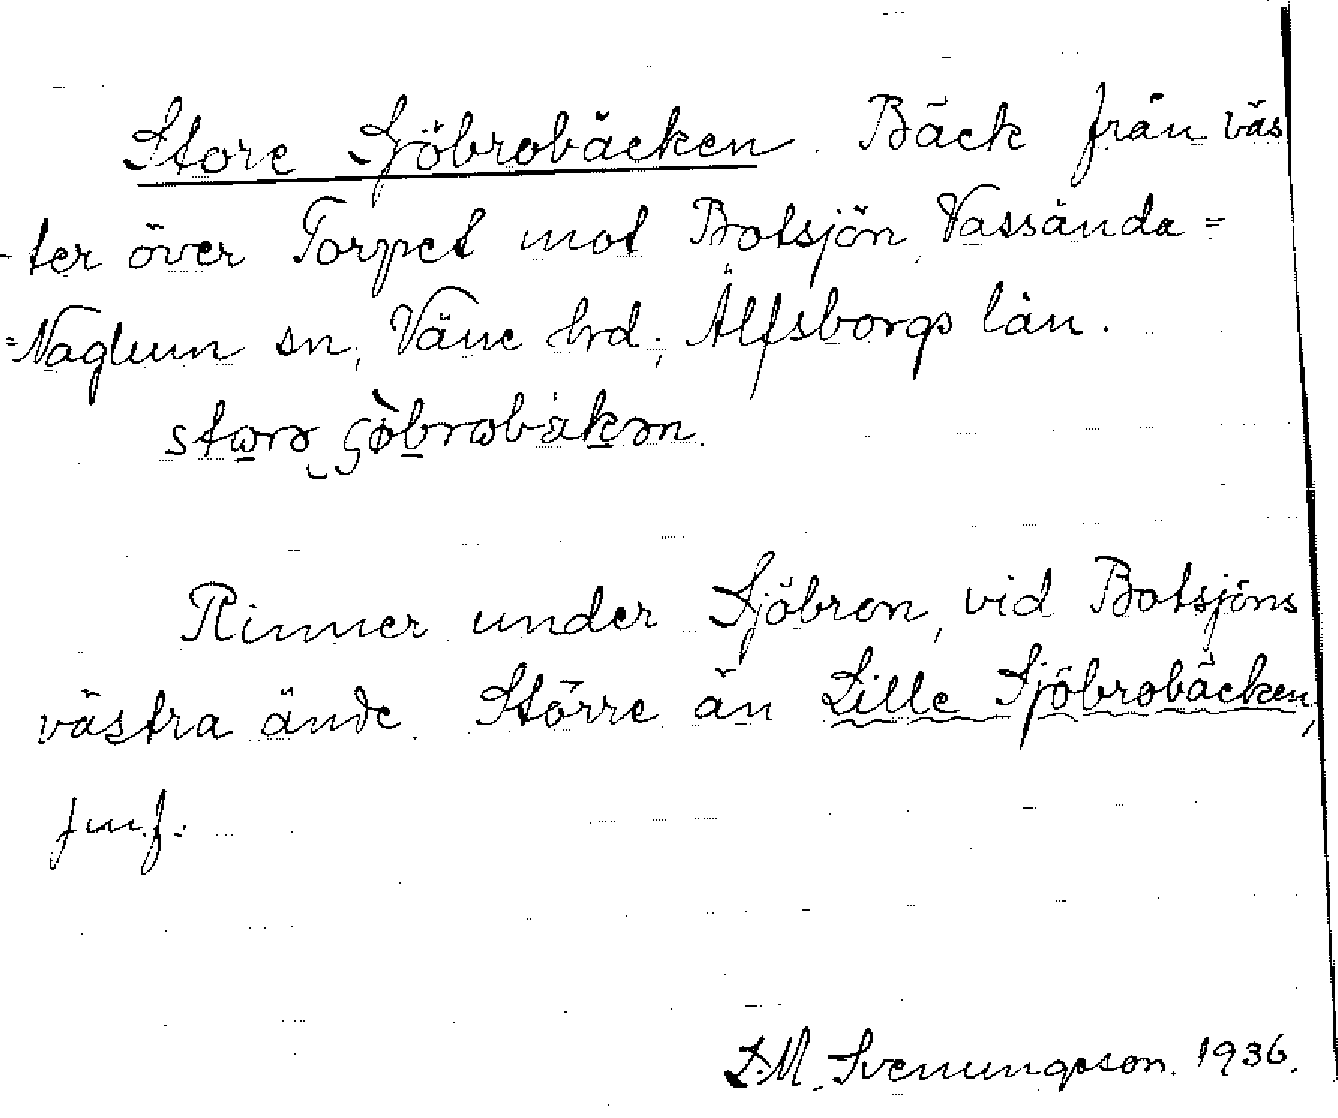 Store Sjöbrobäcken. Bäck från väs
-ter över Torpet mot Botsjön, Vassända=
=Naglum sn, Väne hrd, Älfsborgs län.
Rinner under Sjöbron, vid Botsjöns
västra ände. Större än Lille Sjöbrobäcken,
jmf.
L.M. Svenungsson. 1936.